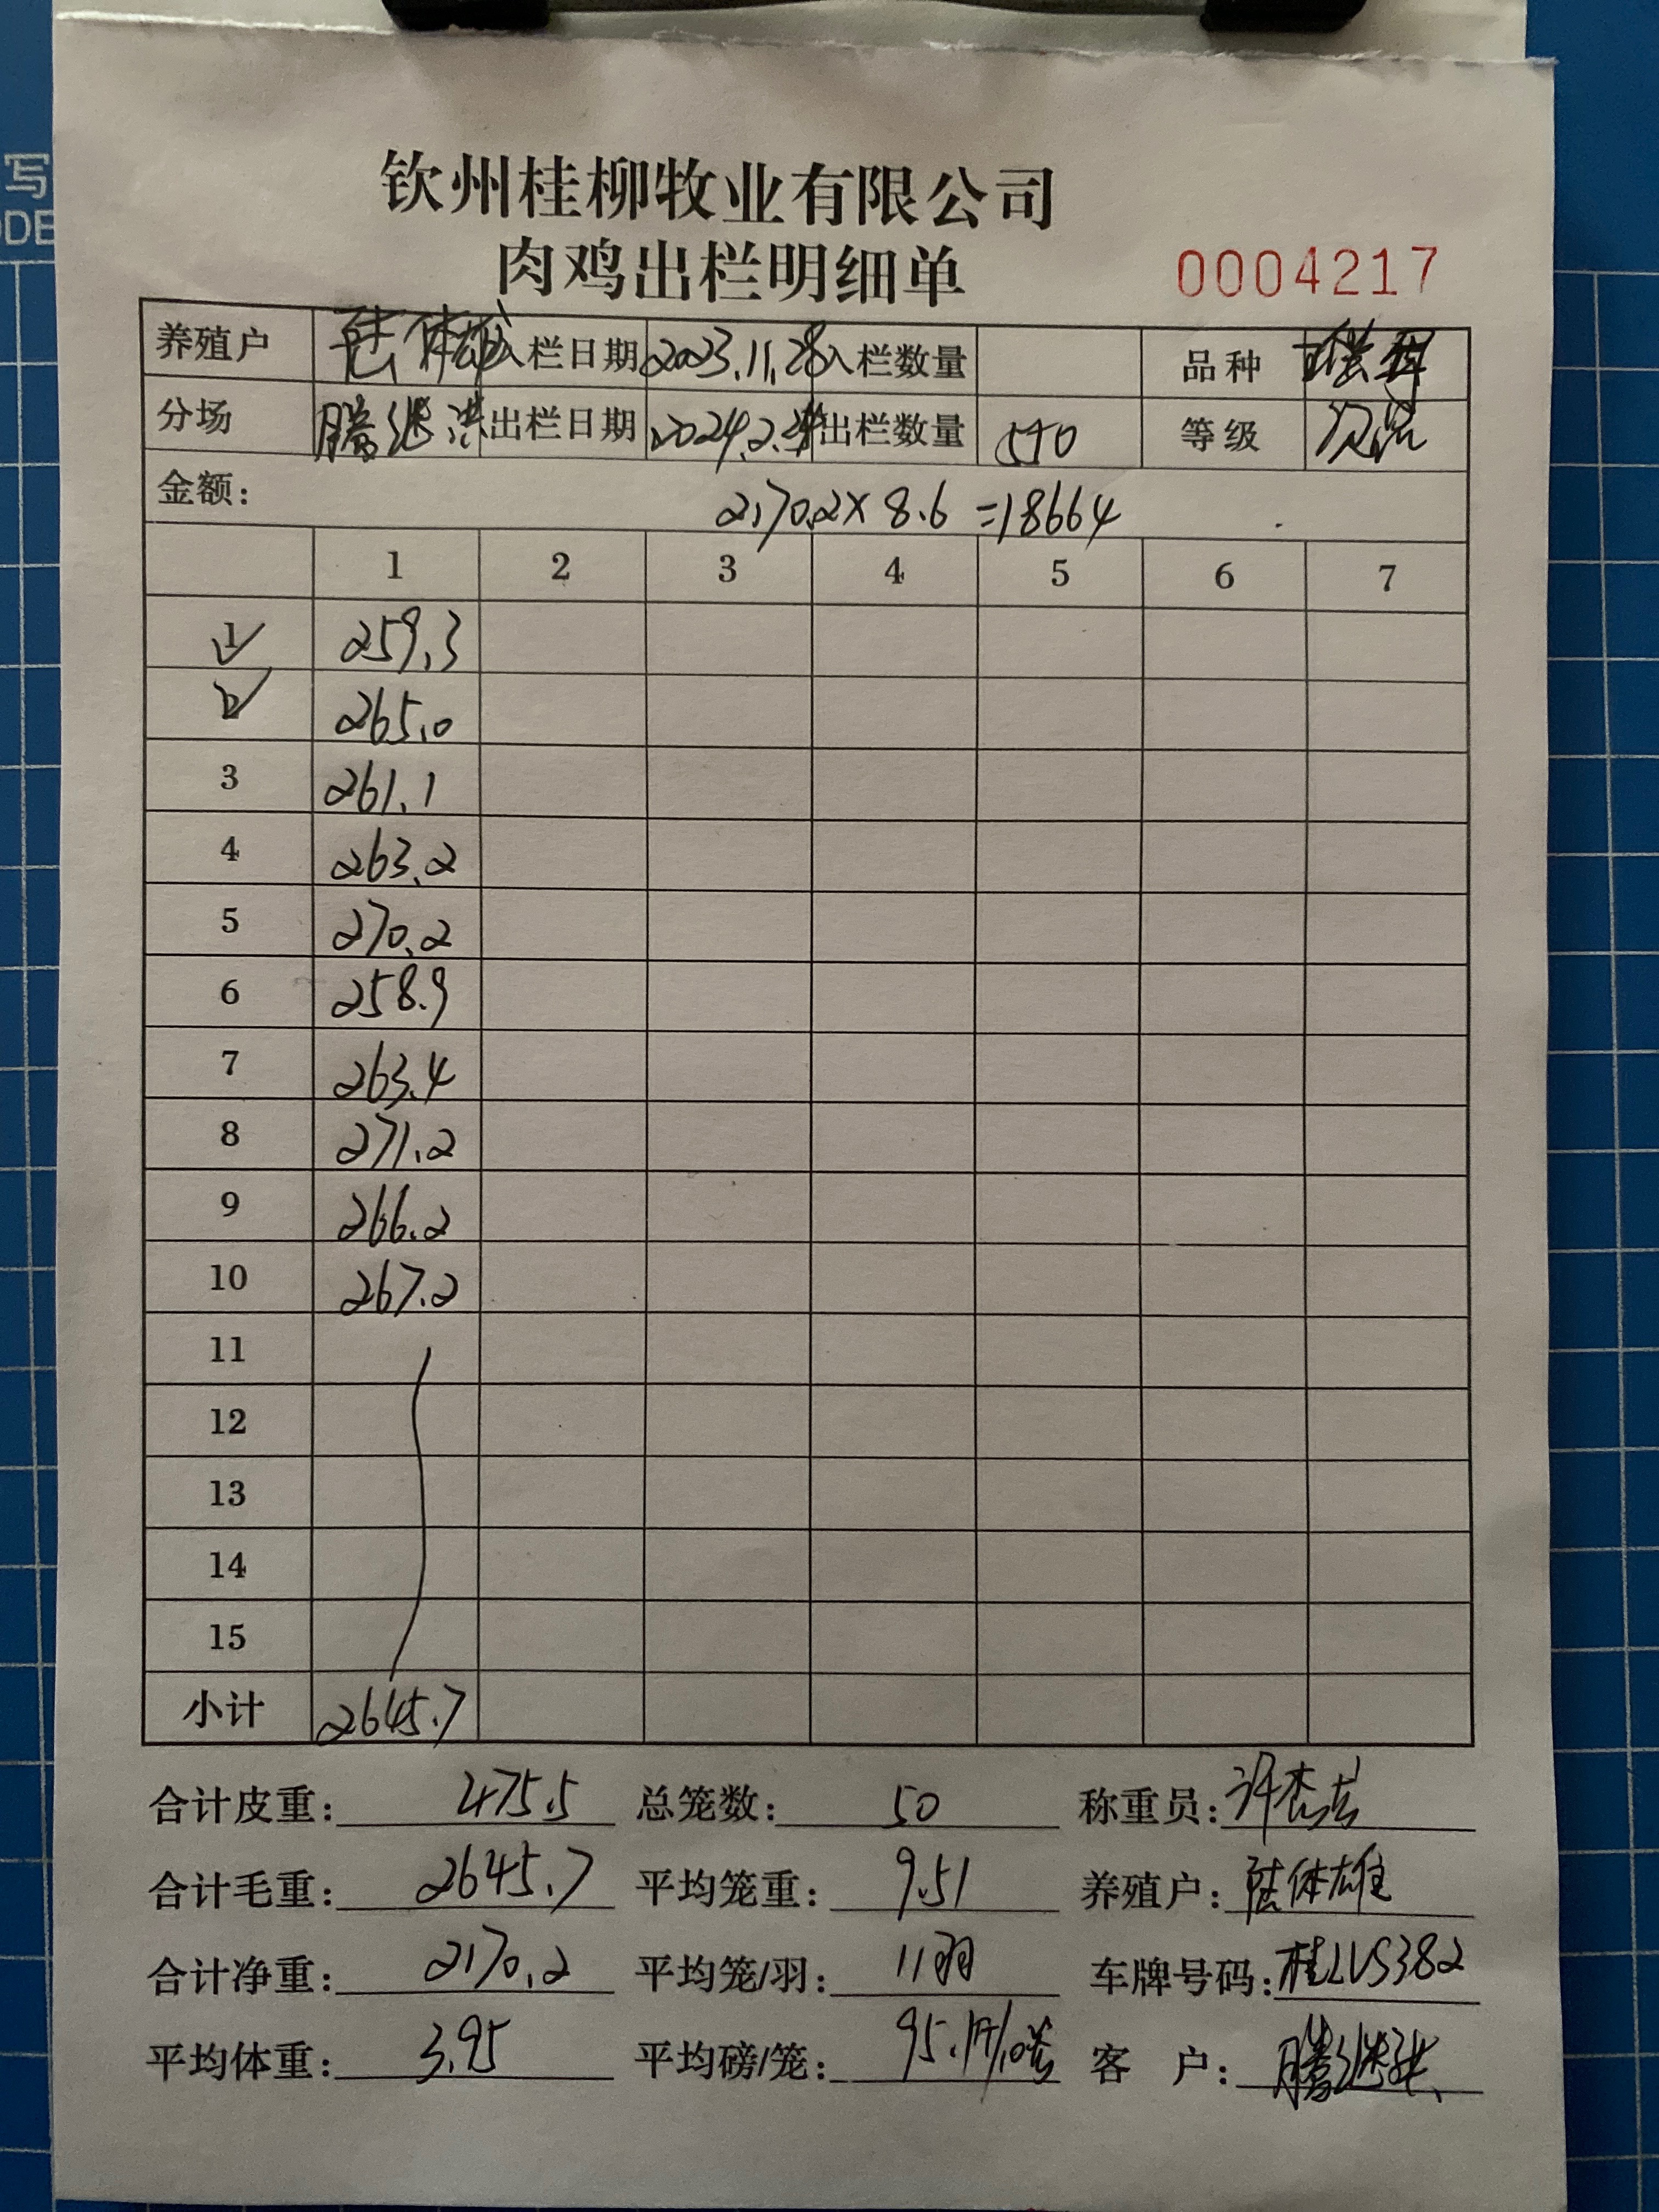 写
ODE
钦州桂柳牧业有限公司
肉鸡出栏明细单 0004217
养殖户 体雄 入栏日期 2023.11.28 入栏数量 品种
分场 腾继洪 出栏日期 2024.2. 出栏数量 550 等级 次品
金额: 2170.2×8.6=18664
1 2 3 4 5 6 7
1 259.3
2 265.0
3 261.1
4 263.2
5 270.2
6 258.9
7 263.4
8 271.2
9 266.2
10 267.2
11
12
13
14
15
小计 2645.7
合计皮重: 475.5 总笼数: 50 称重员: 许杰
合计毛重: 2645.7 平均笼重: 9.51 养殖户: 体雄
合计净重: 2170.2 平均笼/羽: 11羽 车牌号码: 桂LVS382
平均体重: 3.95 平均磅/笼: 95.1 客 户: 腾继洪